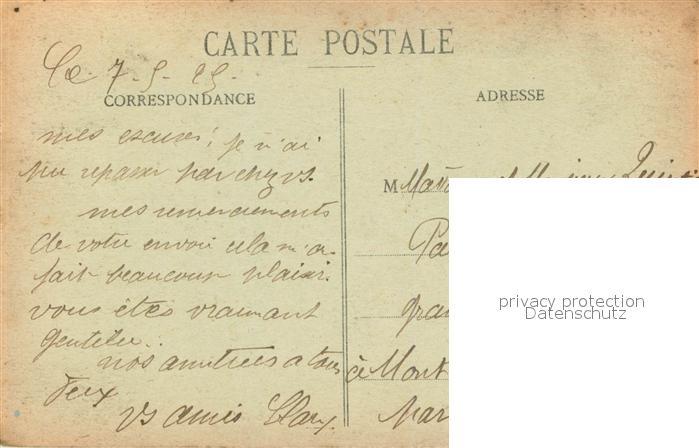 CARTE POSTALE
Le 7-5-25.
CORRESPONDANCE
ADRESSE
mes excuses! je n'ai
pu repasser par chez vs.
mes remerciements
de votre envoi cela m'a
fait beaucoup plaisir.
vous êtes vraiment
gentille.
nos amitiées a tous
deux
vs amis
M
à Mont
privacy protection
Datenschutz